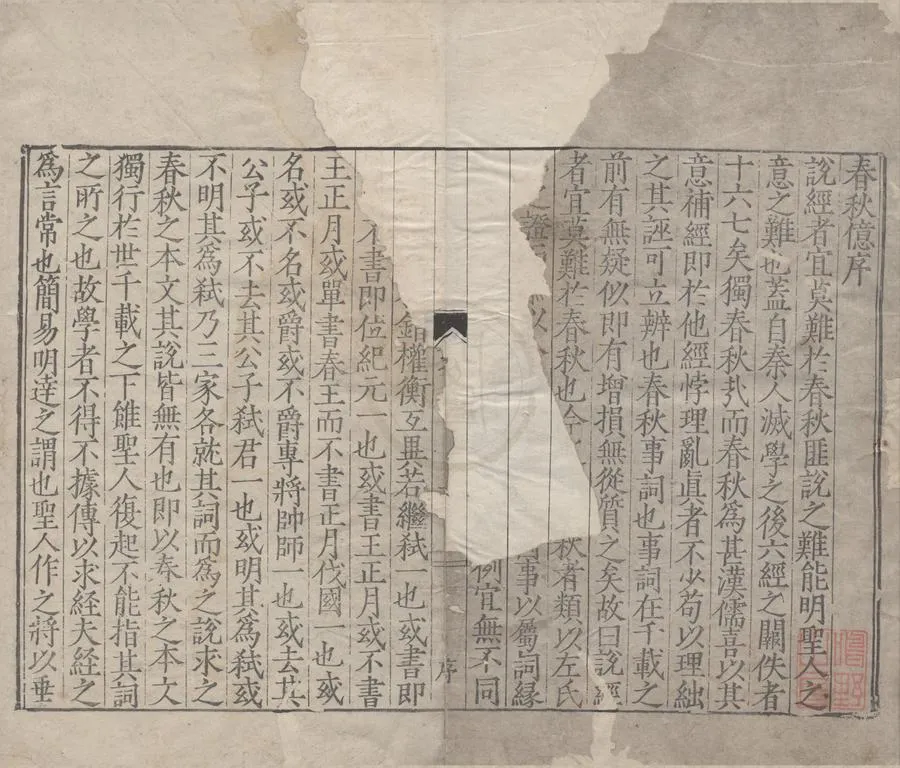 春秋億序
說經者宜莫難於春秋匪說之難能明聖人之
意之難也蓋自秦人滅學之後六經之闕佚者
十六七矣獨春秋乎而春秋爲甚漢儒喜以其
意補經即於他經悖理亂眞者不少苟以理絀
之其誣可立辨也春秋事詞也事詞在千載之
前有無疑似即有增損無從質之矣故曰說經
者宜莫難於春秋也今秋者類以左氏
證以事以屬詞緣
例宜無不同
序
權衡互異若繼弒一也或書即
不書即位紀元一也或書王正月或不書
王正月或單書春王而不書正月伐國一也或
名或不名或爵或不爵專將帥師一也或去其
公子或不去其公子弒君一也或明其爲弒或
不明其爲弒乃三家各就其詞而爲之說求之
春秋之本文其說皆無有也即以春秋之本文
獨行於世千載之下雖聖人復起不能指其詞
之所之也故學者不得不據傳以求經夫經之
爲言常也簡易明達之謂也聖人作之將以垂